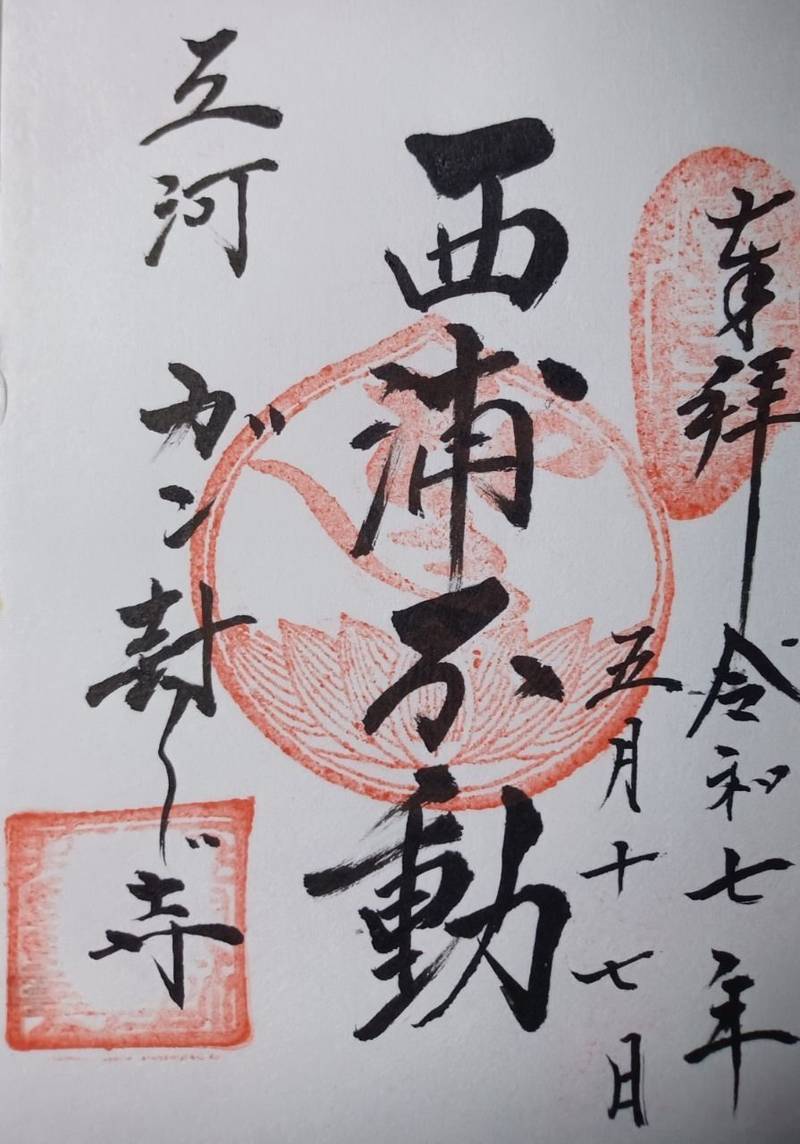 奉拝
令和七年
五月十七日
西浦不動
三河
ガン封じ寺